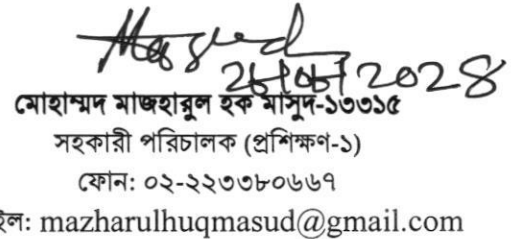 Masud
মোহাম্মদ মাজহারুল হক মাসুদ-১৩৩১৫
সহকারী পরিচালক (প্রশিক্ষণ-১)
ফোন: ০২-২২৩৩৮০৬৬৭
ইল: mazharulhuqmasud@gmail.com